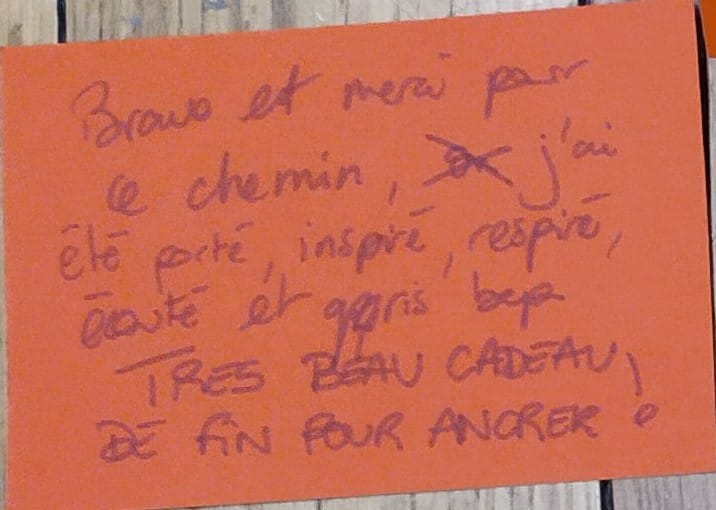 Bravo et merci pour
ce chemin, j'ai
été porté, inspiré, respiré,
écouté et appris
TRES BEAU CADEAU,
DE FIN POUR ANCRER !